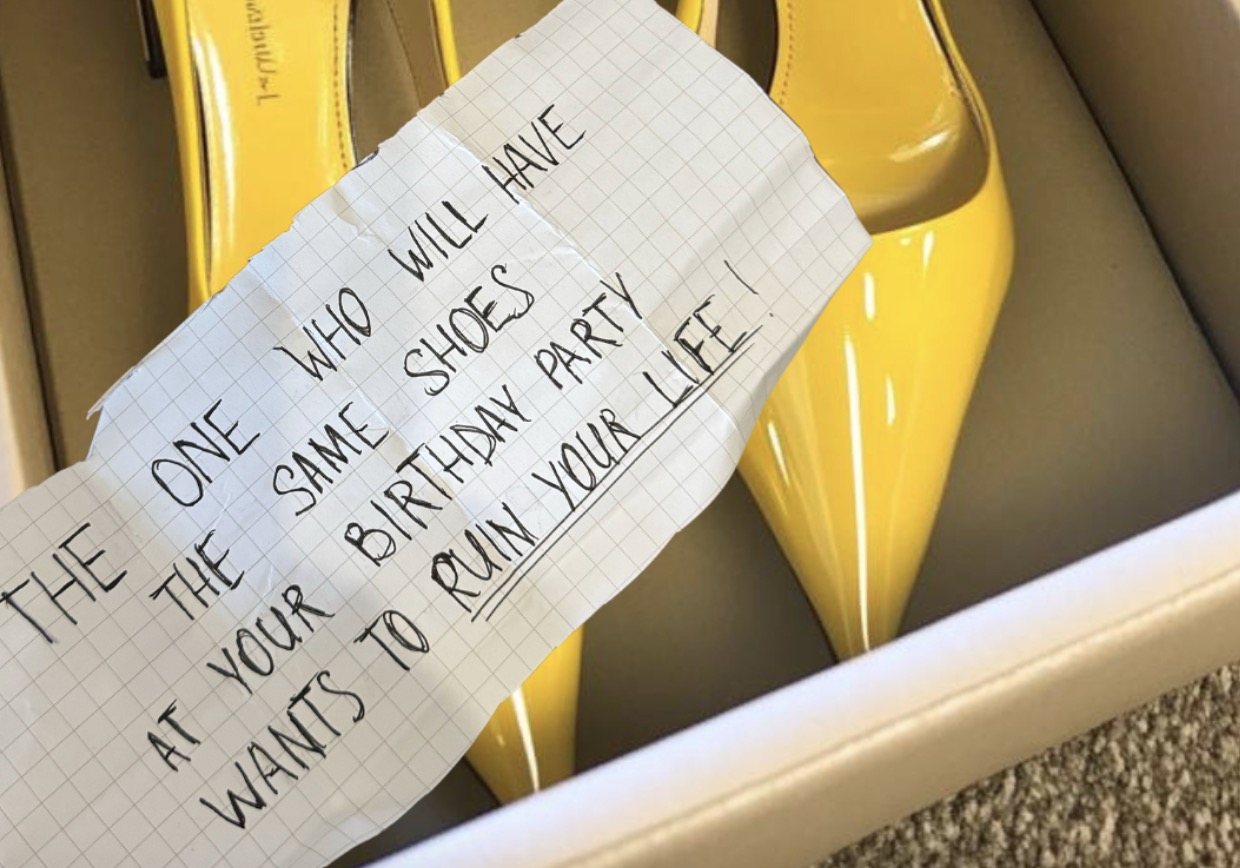 THE ONE WHO WILL HAVE
THE SAME SHOES
AT YOUR BIRTHDAY PARTY
WANTS TO RUIN YOUR LIFE!